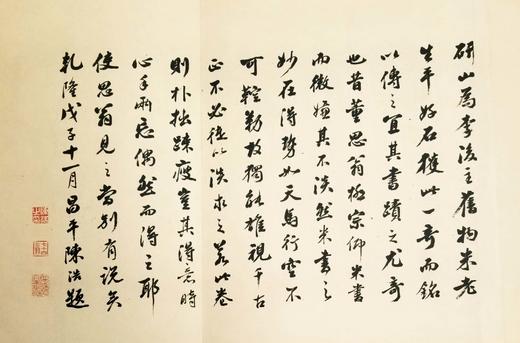 研山為李後主舊物米老
生平好石獲此一奇而銘
以傳之宜其書蹟之尤奇
也昔董思翁極宗仰米書
而微嫌其不淡然米書之
妙在得勢如天馬行空不
可鞚勒故獨能雄視千古
正不必徒以淡求之若此卷
則朴拙疎瘦豈其得意時
心手兩忘偶然而得之耶
使思翁見之當別有說矣
乾隆戊子十一月昌平陳浩題